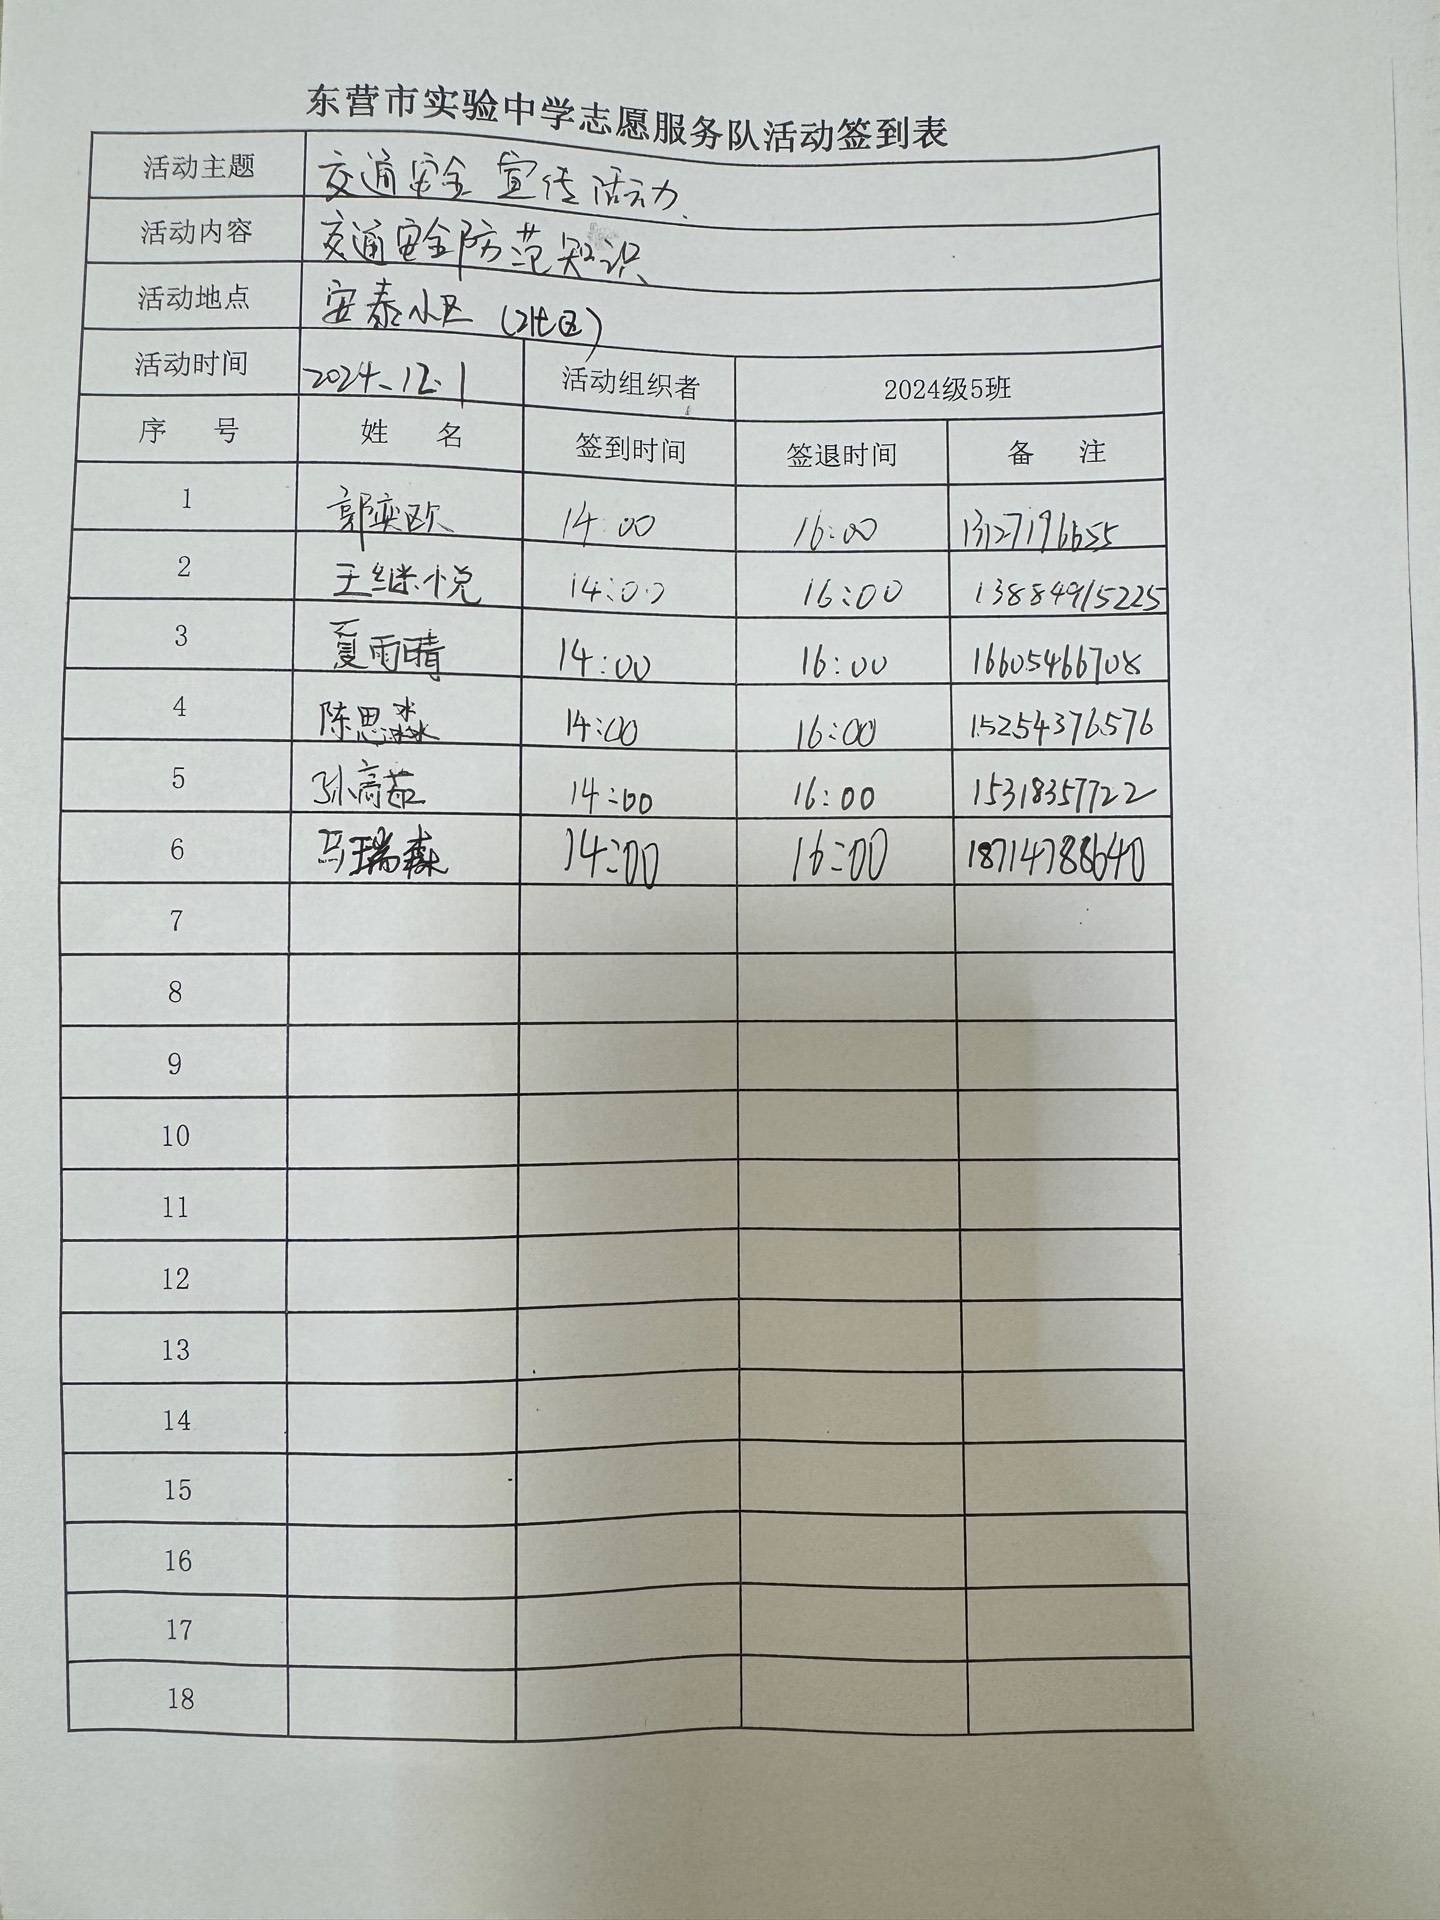 东营市实验中学志愿服务队活动签到表
活动主题 交通安全宣传活动
活动内容 交通安全防范知识
活动地点 安泰小区（北区）
活动时间 2024.12.1 活动组织者 2024级5班
序 号 姓 名 签到时间 签退时间 备 注
1 郭奕欧 14:00 16:00 13127196655
2 王继悦 14:00 16:00 13884915225
3 夏雨晴 14:00 16:00 16605466708
4 陈思淼 14:00 16:00 15254376576
5 孙高茹 14:00 16:00 15318357722
6 马瑞森 14:00 16:00 18714788640
7
8
9
10
11
12
13
14
15
16
17
18